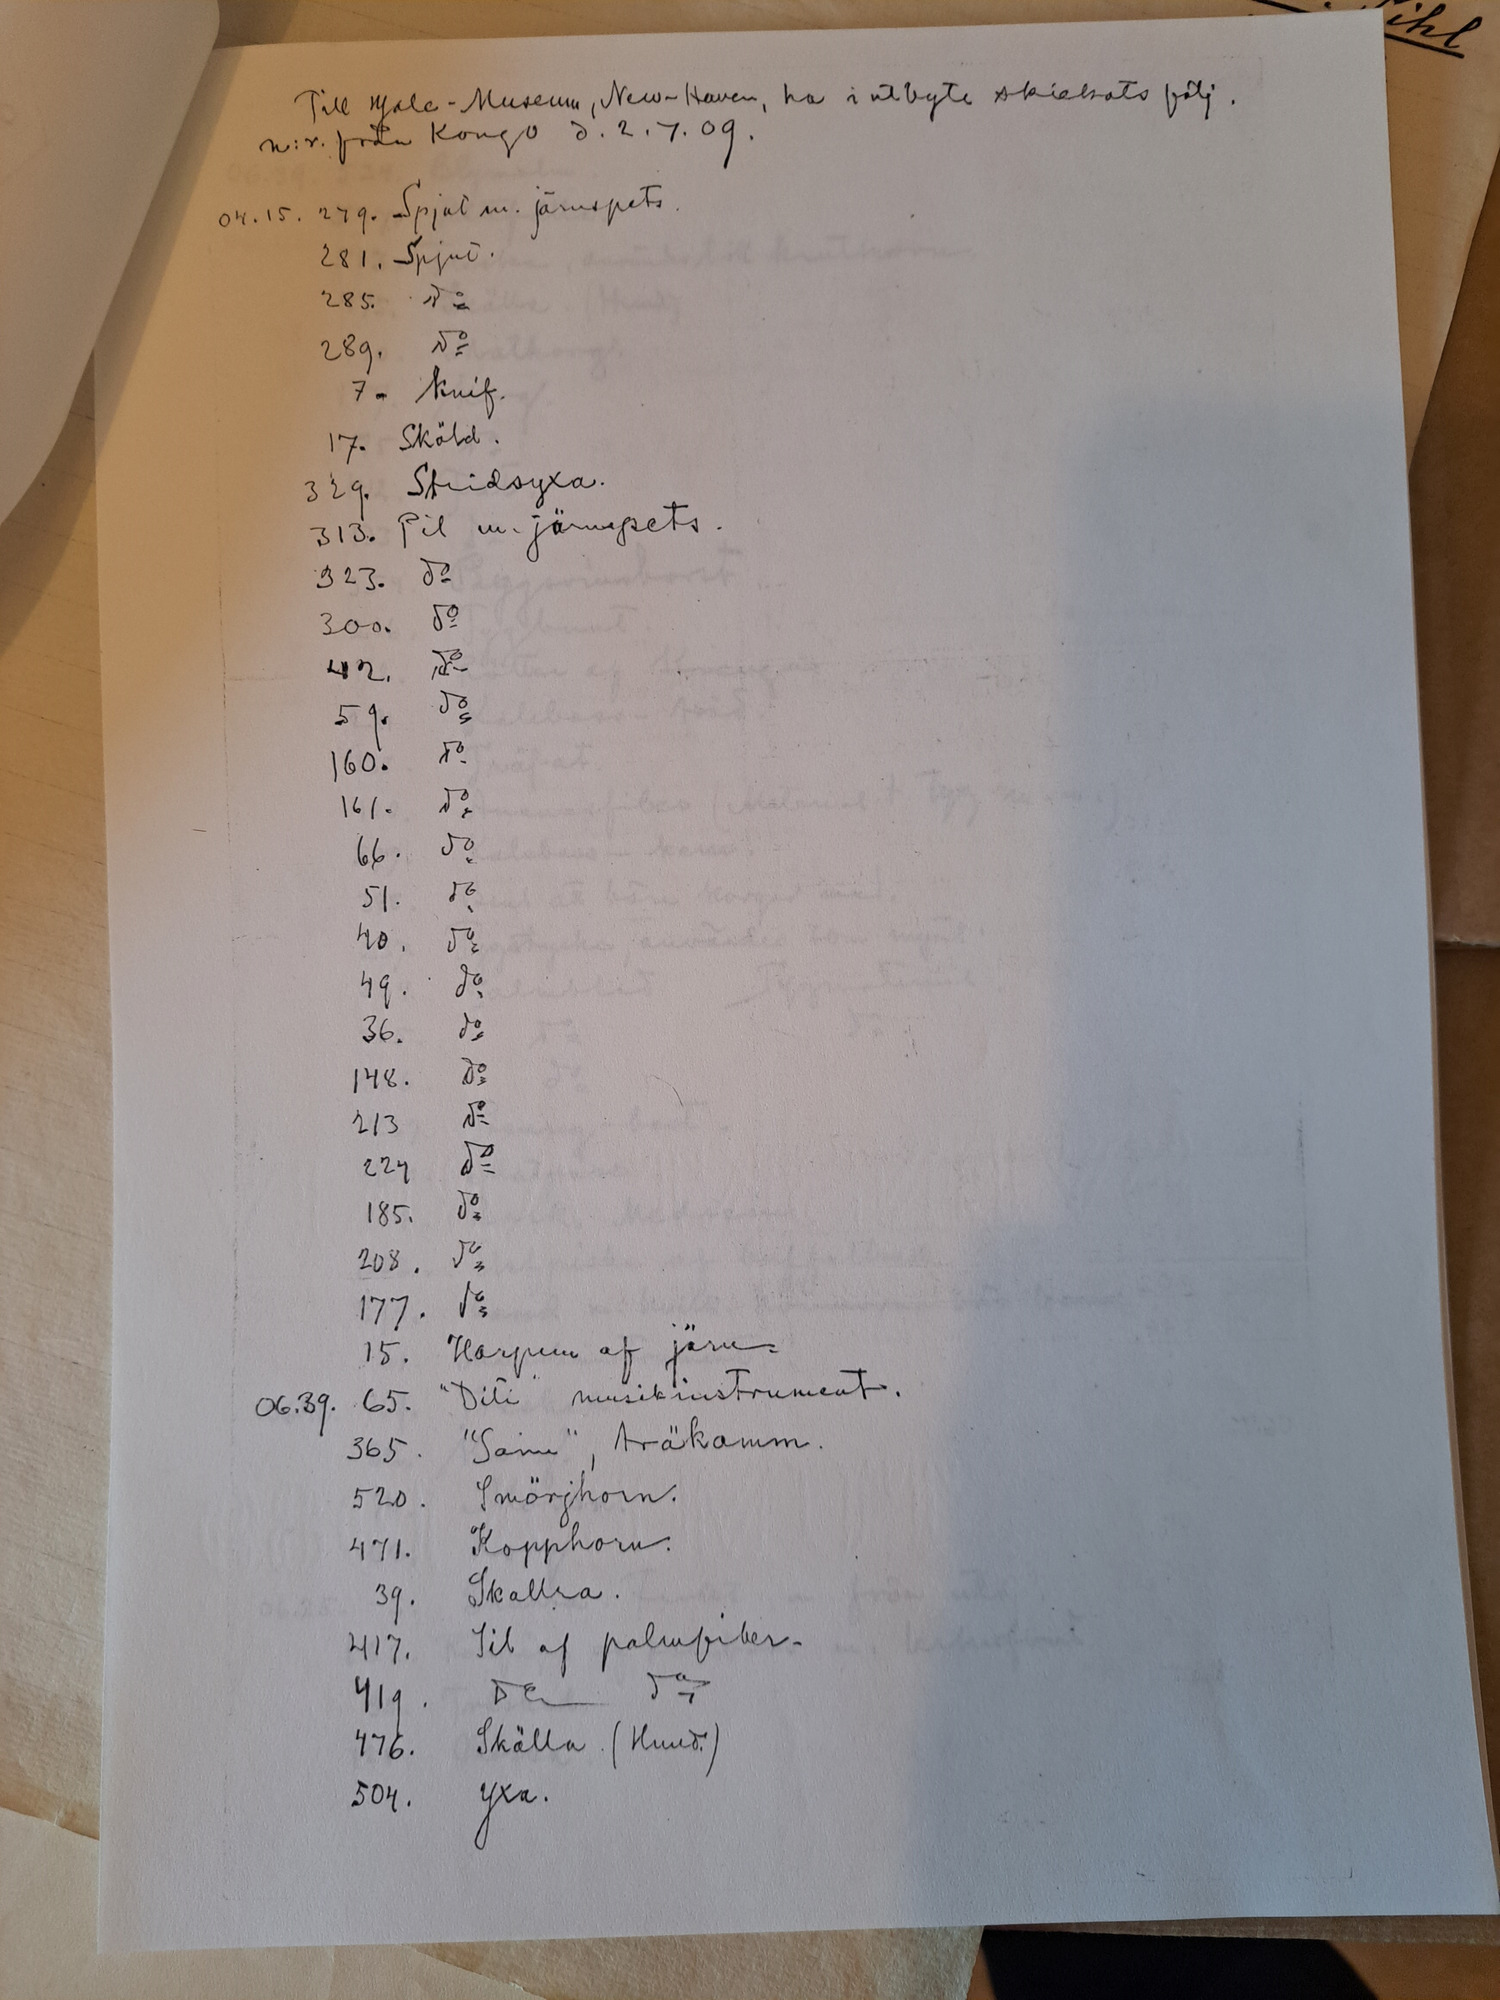 Till Yale-Museum, New-Haven, ha i utbyte skickats följ.
n:r. från Kongo d. 2.7.09.
04.15. 279. Spjut m. järnspets.
281. Spjut.
285. Do
289. Do
7. Knif.
17. Sköld.
329. Stridsyxa.
313. Pil m. järnspets.
323. do
300. do
42. do
59. do
160. do
161. do
66. do
51. do
40. do
49. do
36. do
148. do
213 do
224 do
185. do
208. do
177. do
15. Harpun af järn.
06.39. 65. "Diti" musikinstrument.
365. träkamm.
520. Smörjhorn.
471. Kopphorn.
39. Skallra.
417. Sil af palmfiber.
419. Do do
476. Skälla (Hund.)
504. Yxa.